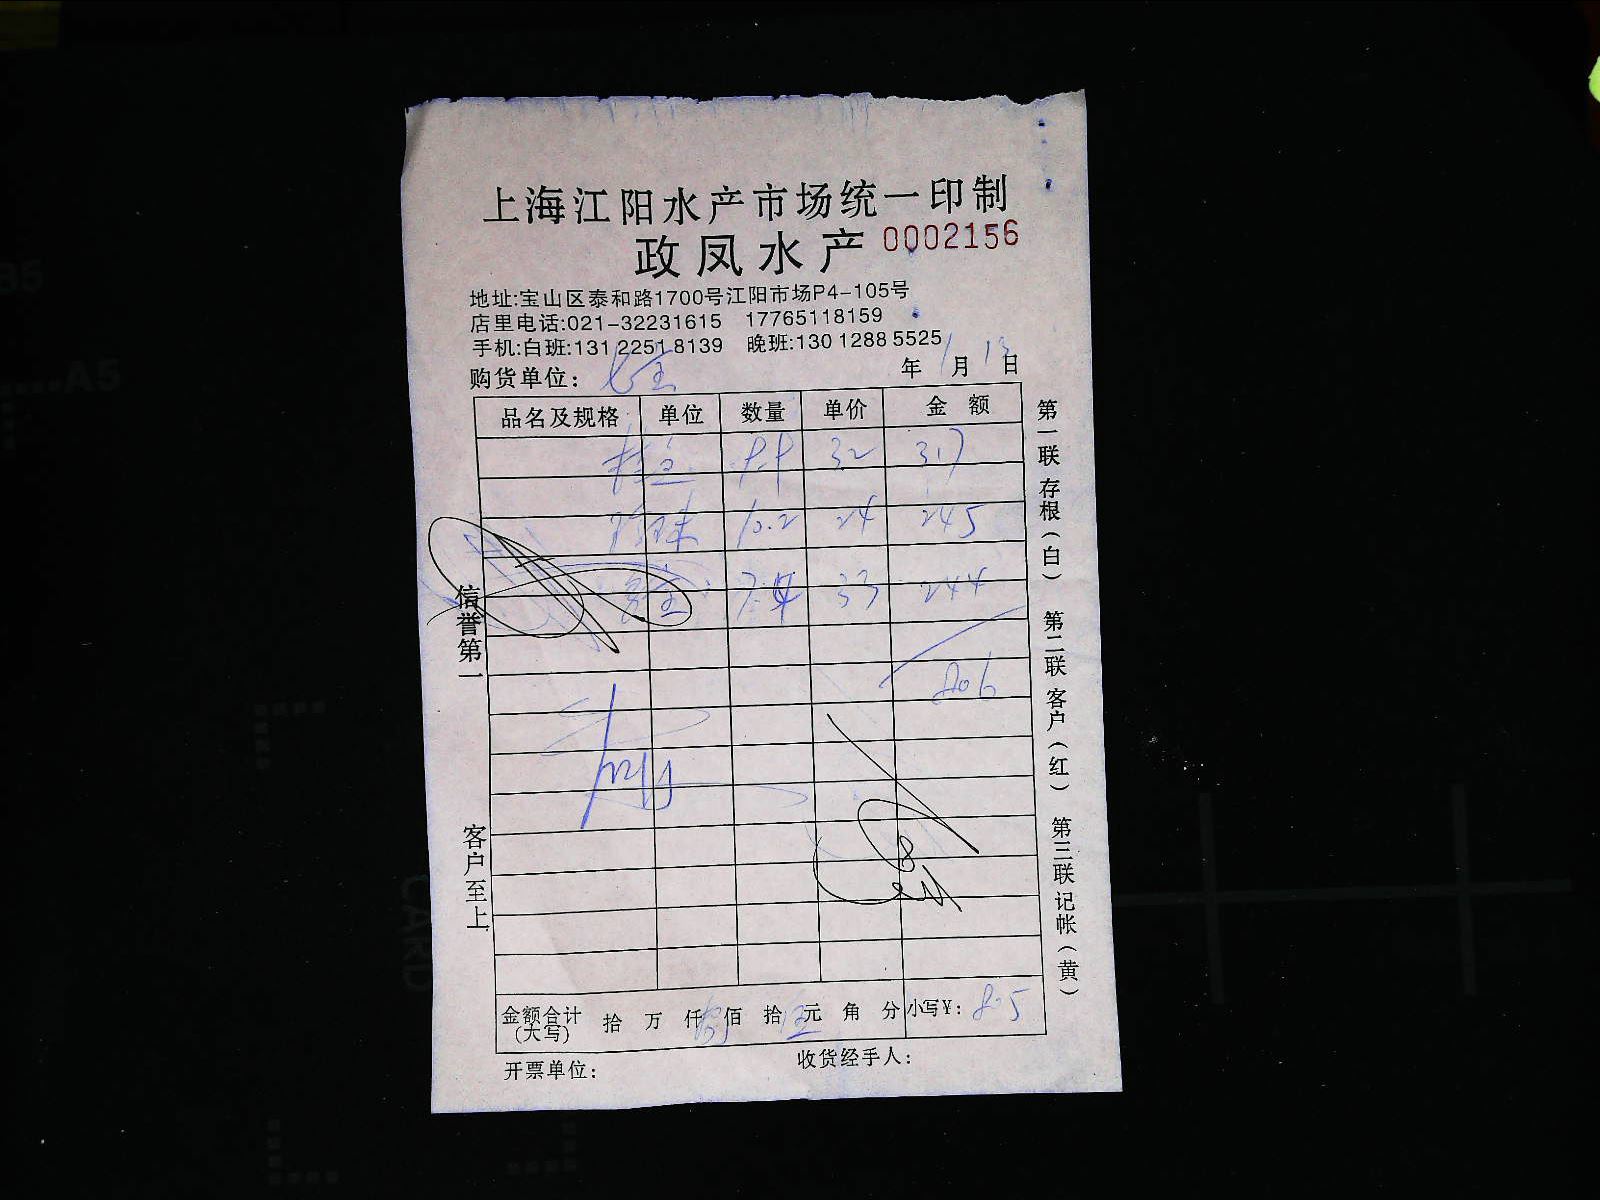 上海江阳水产市场统一印制
政凤水产 0002156
地址:宝山区泰和路1700号江阳市场P4-105号
店里电话:021-32231615 17765118159
手机:白班:131 2251 8139 晚班:130 1288 5525
购货单位: 年 1月 13日
品名及规格 单位 数量 单价 金额
32 317
珍珠 10.2 24 245
7.4 33 244
806
信誉第一
客户至上
第一联 存根(白) 第二联 客户(红) 第三联 记帐(黄)
金额合计(大写) 拾 万 仟 捌佰 拾 伍元 角 分 小写¥: 805
开票单位: 收货经手人: